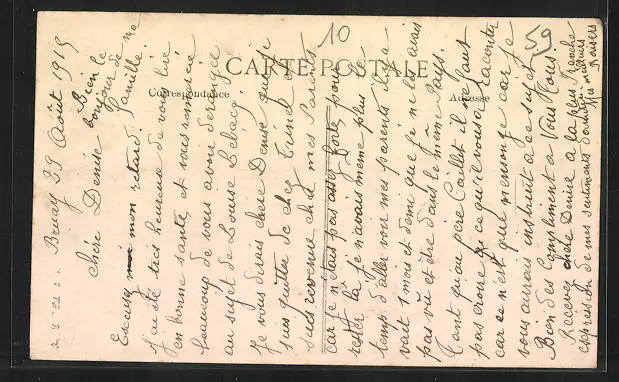 10
59
CARTE POSTALE
Correspondance
Adresse
Bruay 29 Août 1919
Chère Denise
Bien le
bonjour de ma
famille.
Excusez mon retard.
J'ai été très heureux de vous lire
en bonne santé, et vous remercie
beaucoup de vous avoir derangée
au sujet de Louise Lebacq.
Je vous dirais chère Denise que je
suis quitter de chez Trinel et
suis revenu chez mes Parents
car je n'étais pas assez forte pour
rester là je n'avais même plus le
temps d'aller voir mes parents il y a
vait 1 mois et demi que je ne les avais
pas vû et être dans le même Pays.
Tant qu'au père Caillet il ne faut
pas croire à ce qu'il vous a raconter
car ce n'est que mensonge car je
vous aurais instruit à ce sujet
Bien des Compliment à Vous Tous.
Recevez chère Denise a la plus franche
expression de mes sentiments d'amitié
Mes meilleurs
Baisers